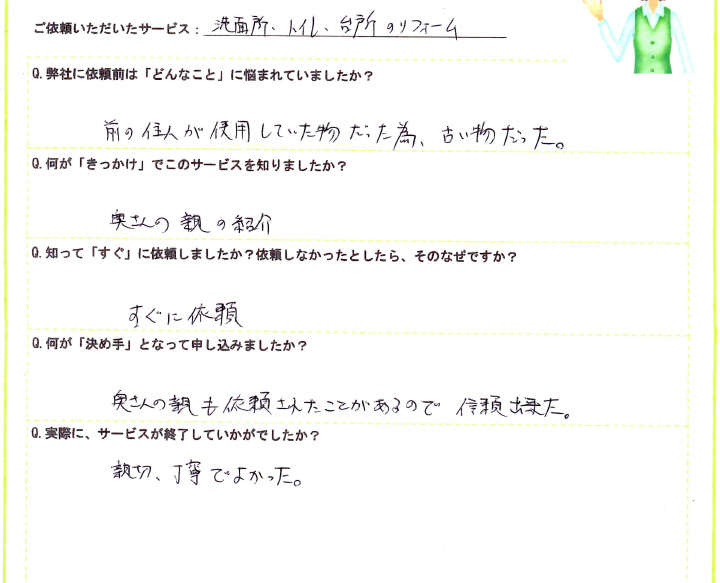 ご依頼いただいたサービス：洗面所、トイレ、台所のリフォーム
Q.弊社に依頼前は「どんなこと」に悩まれていましたか？
前の住人が使用していた物だった為、古い物だった。
Q.何が「きっかけ」でこのサービスを知りましたか？
奥さんの親の紹介
Q.知って「すぐ」に依頼しましたか？依頼しなかったとしたら、そのなぜですか？
すぐに依頼
Q.何が「決め手」となって申し込みましたか？
奥さんの親も依頼されたことがあるので信頼出来た。
Q.実際に、サービスが終了していかがでしたか？
親切、丁寧でよかった。